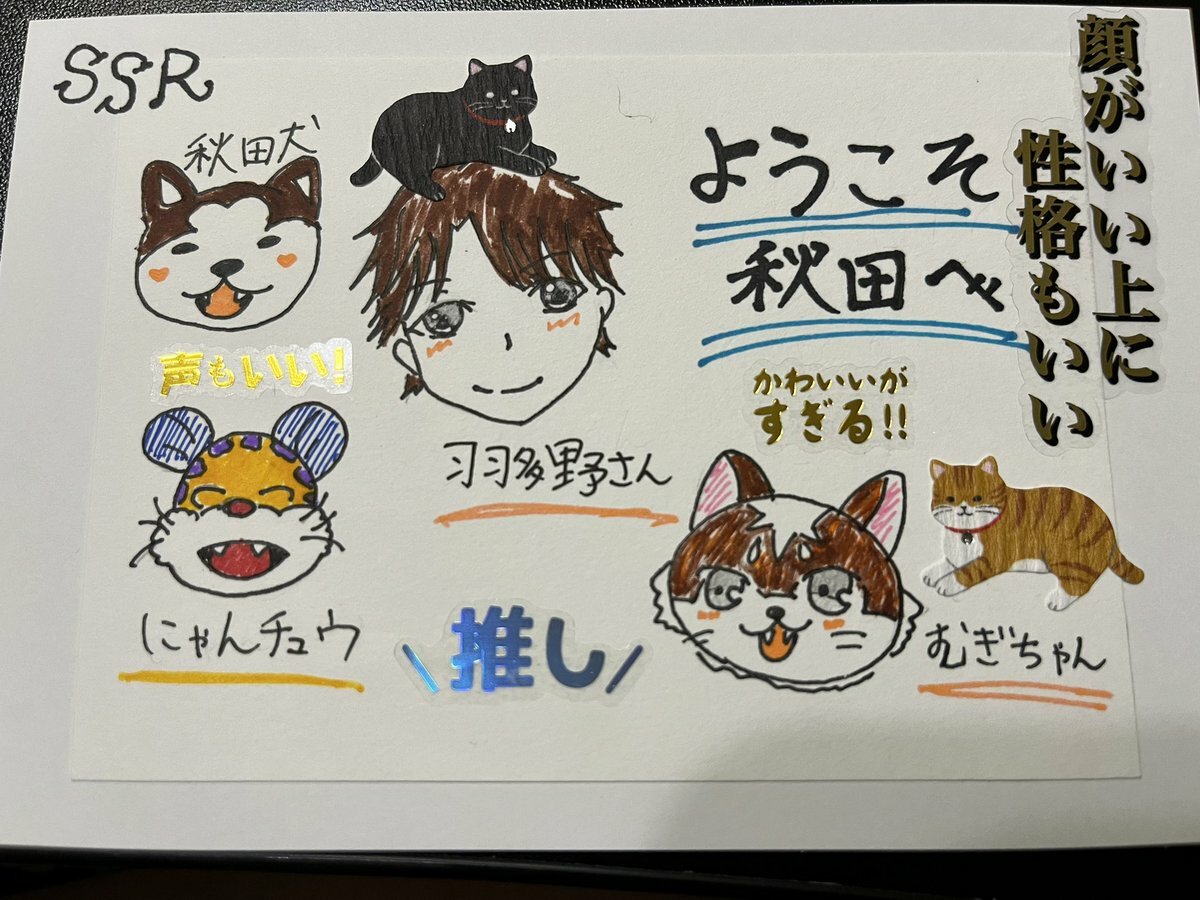 SSR
秋田犬
ようこそ
秋田へ
顔がいい上に
性格もいい
声もいい!
かわいいが
すぎる!!
羽多野さん
にゃんチュウ
\推し/
むぎちゃん